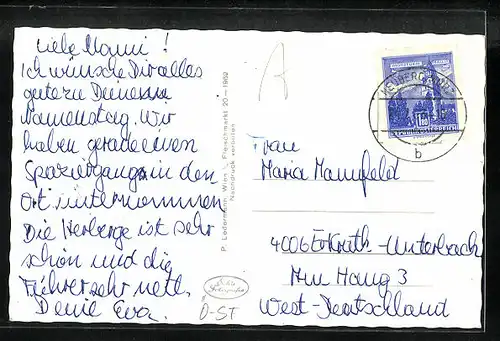 Liebe Mami!
Ich wünsche Dir alles
gute zu Deinem
Namenstag. Wir
haben gerade einen
Spaziergang in den
Ort unternommen.
Die Herberge ist sehr
schön und die
Führer sehr nett.
Deine Eva.
P. Ledermann, Wien I., Fleischmarkt 20 — 1969
Nachdruck verboten
Frau
Maria Mannfeld
4006 Erkrath-Unterbach
Am Hang 3
West-Deutschland
Ö-ST
b